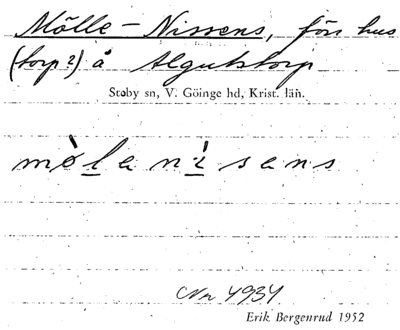 Mölle-Nissens, förr hus
(torp?) å Algutstorp
Stoby sn, V. Göinge hd, Krist. län.
mø̀lanísans
Nr 4934
Erik Bergenrud 1952